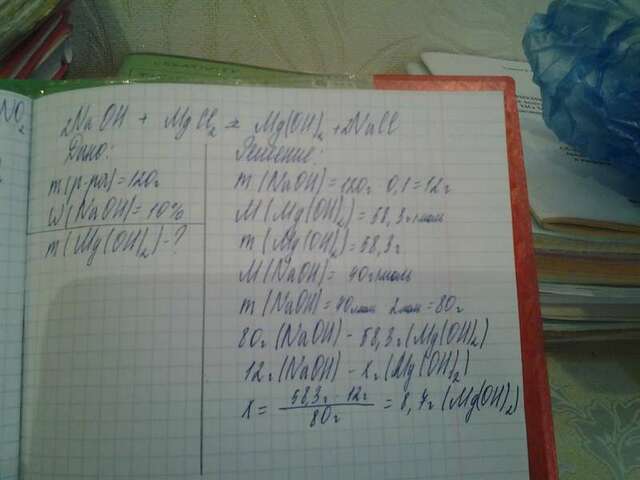 NO₂
2NaOH + MgCl₂ = Mg(OH)₂ + 2NaCl
Дано:
m(р-ра)=120г
ω(NaOH)=10%
m(Mg(OH)₂)-?
Решение:
m(NaOH)=120г · 0,1=12г
M(Mg(OH)₂)=58,3г/моль
m(Mg(OH)₂)=58,3г
M(NaOH)= 40г/моль
m(NaOH)=40г/моль · 2моль=80г
80г(NaOH) - 58,3г(Mg(OH)₂)
12г(NaOH) - xг(Mg(OH)₂)
x= 58,3г · 12г / 80г = 8,7г (Mg(OH)₂)